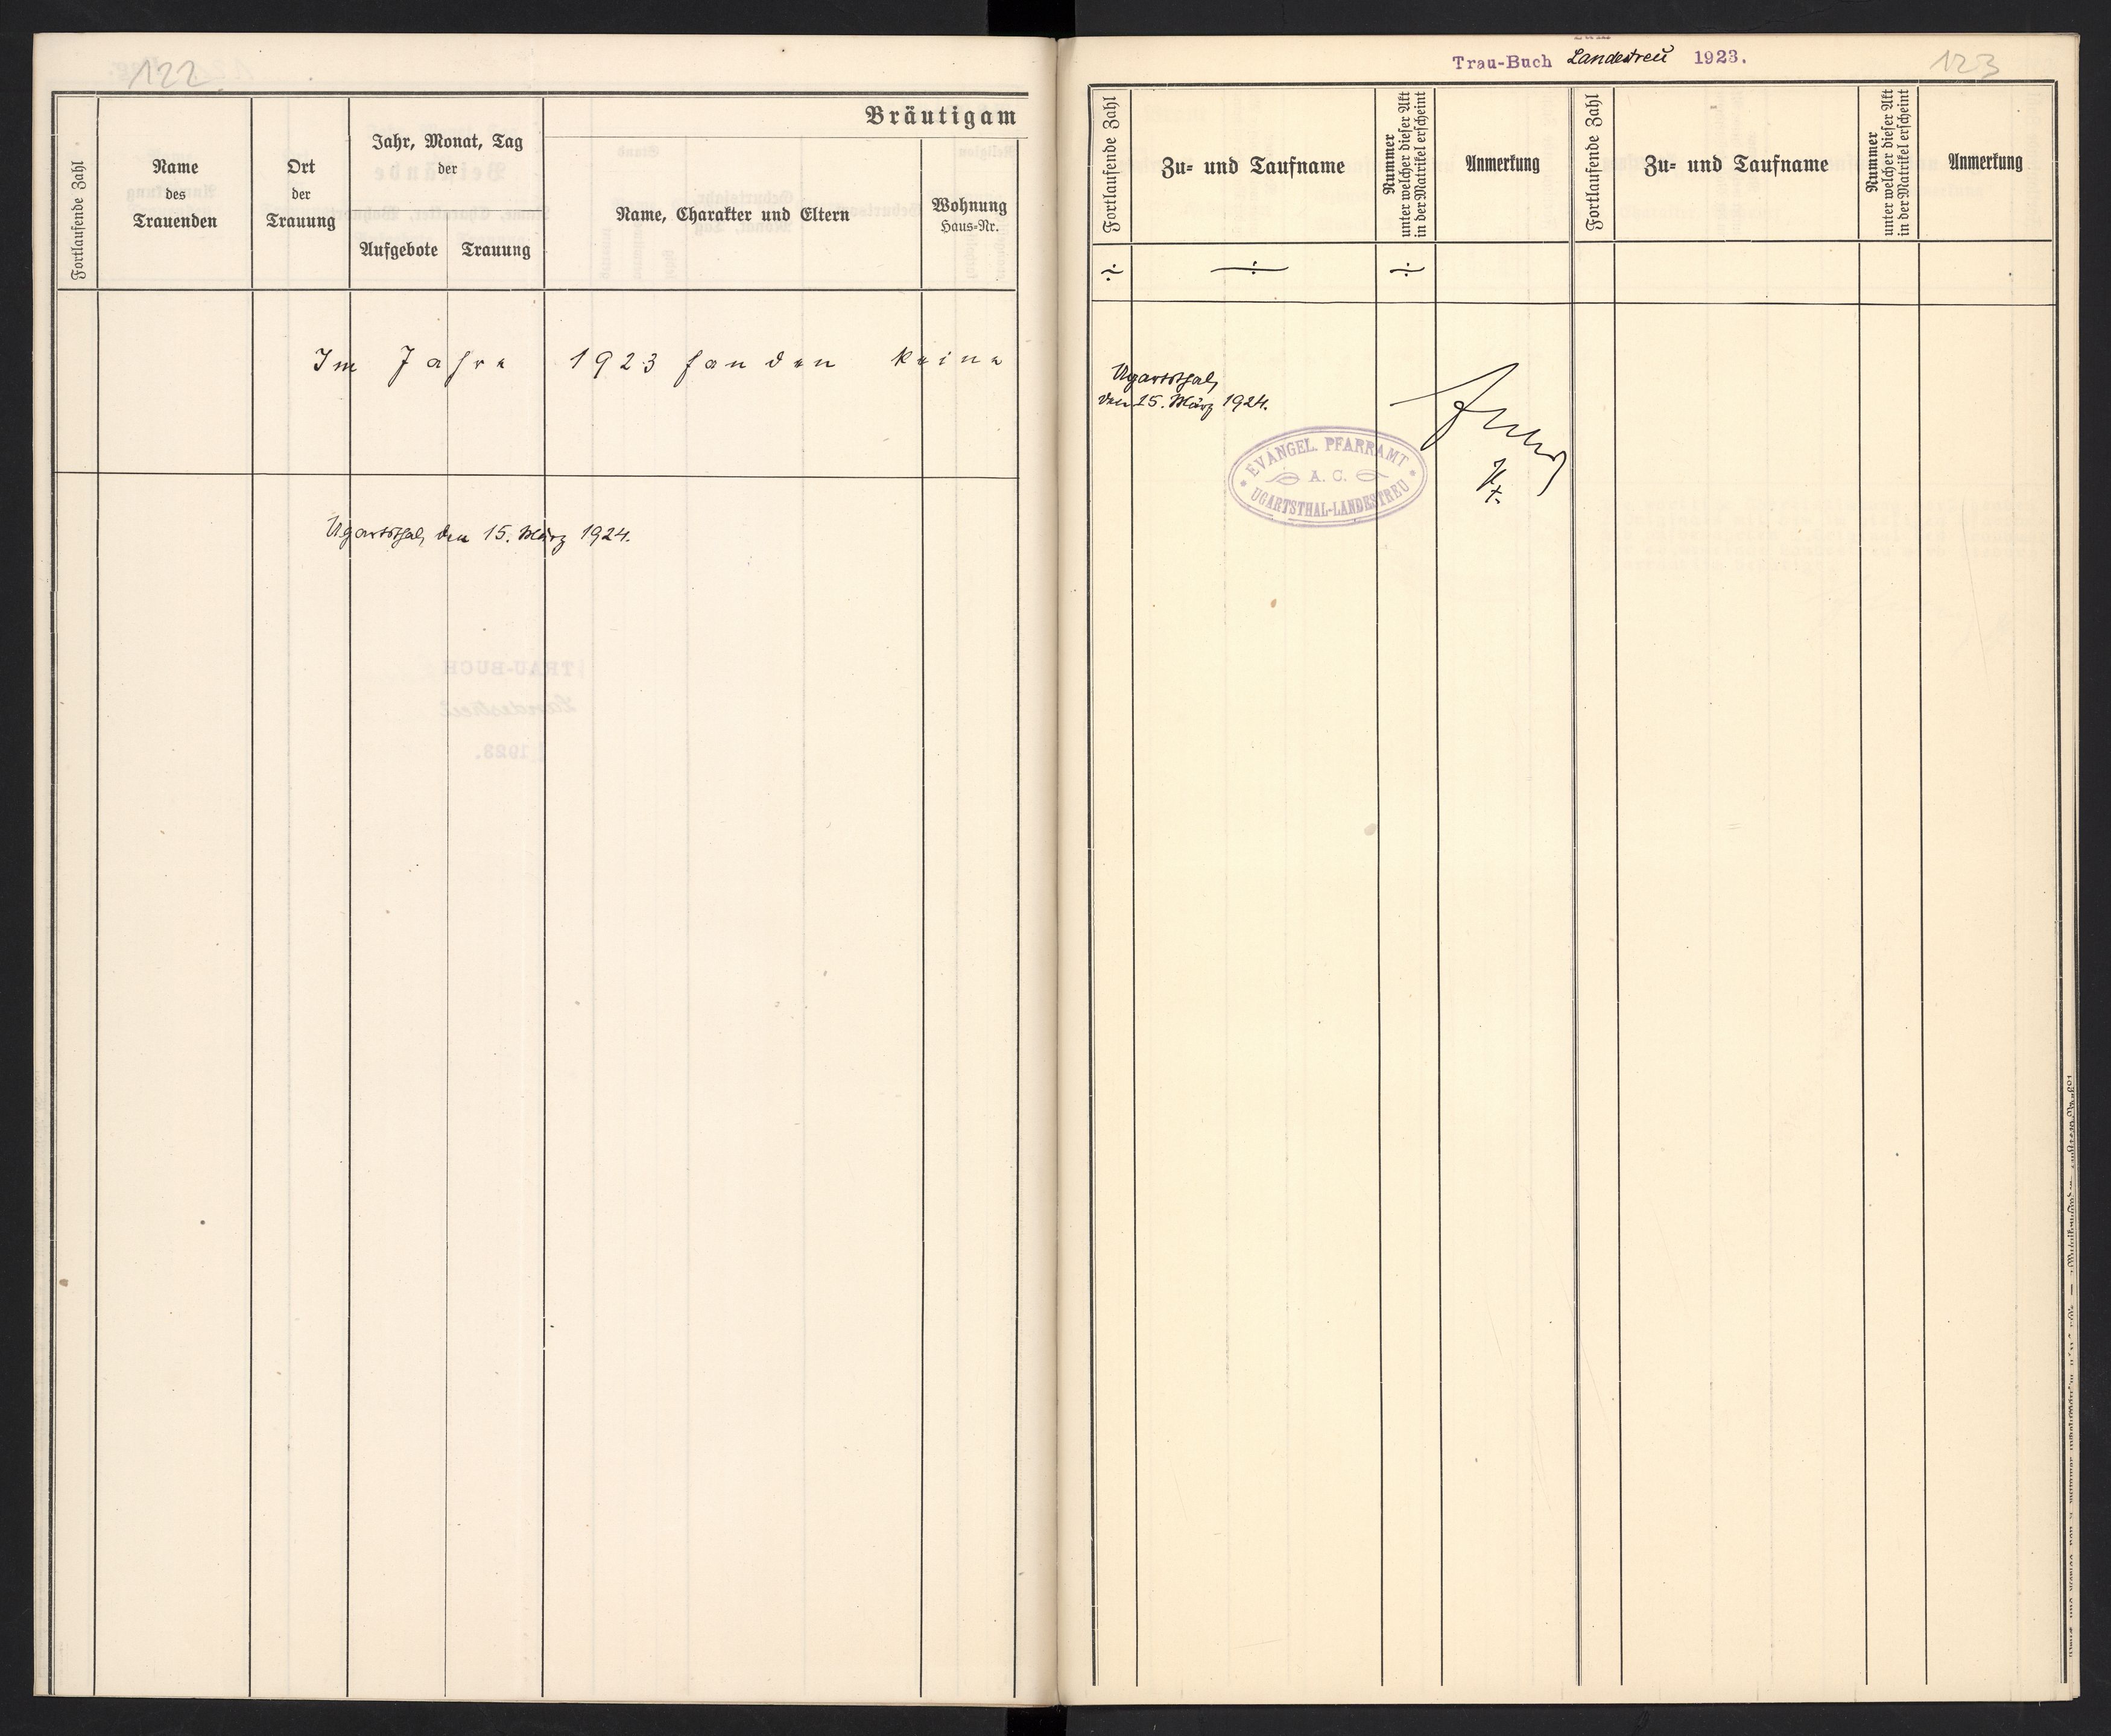 122.
Bräutigam
Fortlaufende Zahl
Name
des
Trauenden
Ort
der
Trauung
Jahr, Monat, Tag
der
Aufgebote
Trauung
Name, Charakter und Eltern
Wohnung
Haus=Nr.
Im Jahre 1923 fanden keine
Ugartsthal, den 15. März 1924.
TRAU-BUCH
Landestreü
1923.
zum
Trau-Buch Landestreü 1923.
123
Fortlaufende Zahl
Zu= und Taufname
Nummer
unter welcher dieser Akt
in der Matrikel erscheint
Anmerkung
Fortlaufende Zahl
Zu= und Taufname
Nummer
unter welcher dieser Akt
in der Matrikel erscheint
Anmerkung
Ugartsthal,
den 15. März 1924.
EVANGEL. PFARRAMT
A. C.
UGARTSTHAL-LANDESTREU